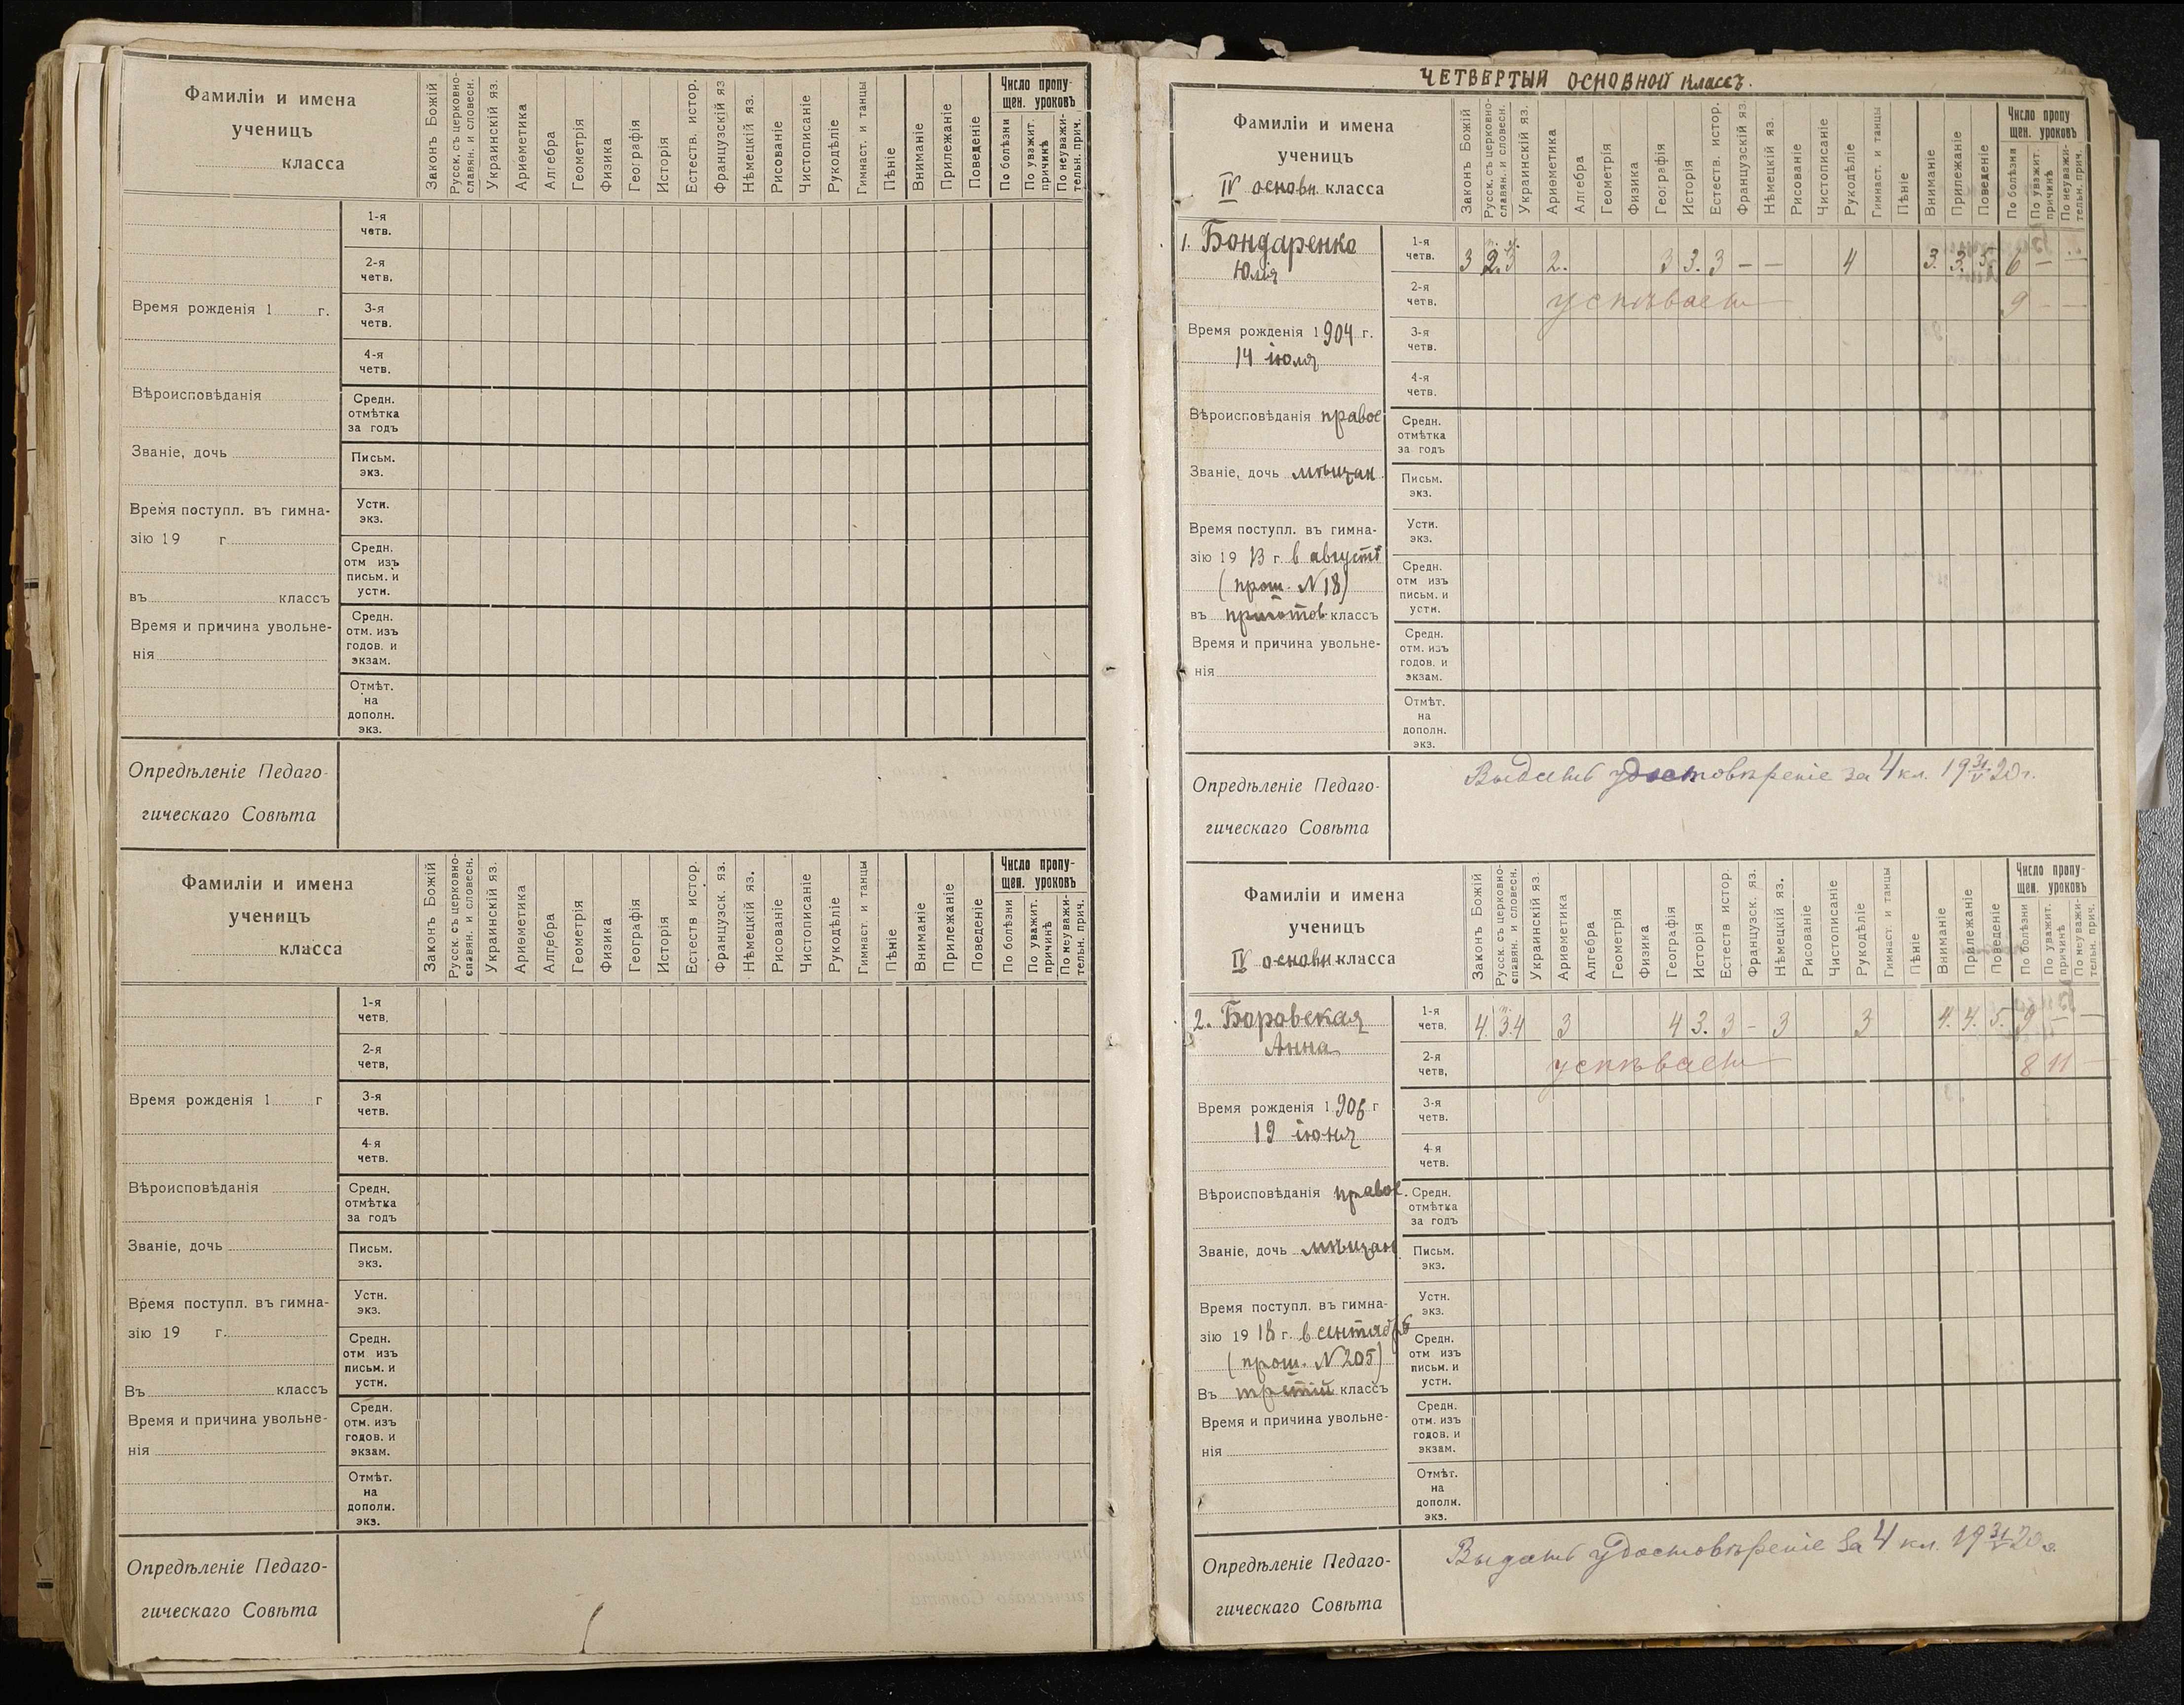 Фамиліи и имена
ученицъ
класса
Законъ Божій
Русск. съ церковно-
славян. и словесн.
Украинскій яз.
Ариѳметика
Алгебра
Геометрія
Физика
Географія
Исторія
Естеств. истор.
Французскій яз
Нѣмецкій яз.
Рисованіе
Чистописаніе
Рукодѣліе
Гимнаст. и танцы
Пѣніе
Вниманіе
Прилежаніе
Поведеніе
Число пропу-
щен. уроковъ
По болѣзни
По уважит.
причинѣ
По неуважи-
тельн. прич.
1-я
четв.
2-я
четв.
Время рожденія 1 г.
3-я
четв.
4-я
четв.
Вѣроисповѣданія
Средн.
отмѣтка
за годъ
Званіе, дочь
Письм.
экз.
Время поступл. въ гимна-
зію 19 г
Устн.
экз.
Средн.
отм изъ
письм. и
устн.
въ классъ
Время и причина увольне-
нія
Средн.
отм. изъ
годов. и
экзам.
Отмѣт.
на
дополн.
экз.
Опредѣленіе Педаго-
гическаго Совѣта
Фамиліи и имена
ученицъ
класса
Законъ Божій
Русск. съ церковно-
славян. и словесн.
Украинскій яз.
Ариѳметика
Алгебра
Геометрія
Физика
Географія
Исторія
Естеств истор.
Французск. яз.
Нѣмецкій яз.
Рисованіе
Чистописаніе
Рукодѣліе
Гимнаст. и танцы
Пѣніе
Вниманіе
Прилежаніе
Поведеніе
Число пропу-
щен. уроковъ
По болѣзни
По уважит.
причинѣ
По неуважи-
тельн. прич.
1-я
четв,
2-я
четв,
Время рожденія 1 г
3-я
четв.
4-я
четв.
Вѣроисповѣданія
Средн,
отмѣтка
за годъ
Званіе, дочь
Письм.
экз.
Время поступл. въ гимна-
зію 19 г.
Устн.
экз.
Средн.
отм изъ
письм. и
устн.
Въ классъ
Время и причина увольне-
нія
Средн.
отм. изъ
годов. и
экзам.
Отмѣт.
на
дополн.
экз.
Опредѣленіе Педаго-
гическаго Совѣта
ЧЕТВЕРТЫЙ ОСНОВНОЙ классъ.
Фамиліи и имена
ученицъ
IV основн. класса
Законъ Божій
Русск. съ церковно-
славян. и словесн.
Украинскій яз.
Ариѳметика
Алгебра
Геометрія
Физика
Географія
Исторія
Естеств. истор.
Французскій яз.
Нѣмецкій яз.
Рисованіе
Чистописаніе
Рукодѣліе
Гимнаст. и танцы
Пѣніе
Вниманіе
Прилежаніе
Поведеніе
Число пропу
щен. уроковъ
По болѣзни
По уважит.
причинѣ
По неуважи-
тельн. прич.
1. Бондаренко
Юлія
1-я
четв.
3 2. 3 2. 3 3. 3 – – 4 3. 3. 5. 6 – –
2-я
четв.
успѣваетъ 9 – –
Время рожденія 1904 г.
14 іюля
3-я
четв.
4-я
четв.
Вѣроисповѣданія правос
Средн.
отмѣтка
за годъ
Званіе, дочь мѣщан.
Письм.
экз.
Время поступл. въ гимна-
зію 19 13 г. в августѣ
(прош. N 18)
въ приготов. классъ
Устн.
экз.
Средн.
отм изъ
письм. и
устн.
Время и причина увольне-
нія
Средн.
отм. изъ
годов. и
экзам.
Отмѣт.
на
дополн.
экз.
Опредѣленіе Педаго-
гическаго Совѣта
Выдать удостовѣреніе за 4 кл. 19 31/V 20 г.
Фамиліи и имена
ученицъ
IV основн. класса
Законъ Божій
Русск. съ церковно-
славян. и словесн.
Украинскій яз.
Ариѳметика
Алгебра
Геометрія
Физика
Географія
Исторія
Естеств истор.
Французск. яз.
Нѣмецкій яз.
Рисованіе
Чистописаніе
Рукодѣліе
Гимнаст. и танцы
Пѣніе
Вниманіе
Прилежаніе
Поведеніе
Число пропу-
щен. уроковъ
По болѣзни
По уважит.
причинѣ
По неуважи-
тельн. прич.
2. Боровская
Анна
1-я
четв,
4. 3. 4 3 4 3. 3 – 3 3 4. 4. 5. 9 – –
2-я
четв,
успѣваетъ 8 11 –
Время рожденія 1906 г
19 іюня
3-я
четв.
4-я
четв.
Вѣроисповѣданія правос.
Средн.
отмѣтка
за годъ
Званіе, дочь мѣщан.
Письм.
экз.
Время поступл. въ гимна-
зію 19 18 г. в сентябрѣ
(прош. N 205)
Въ третій классъ
Устн.
экз.
Средн.
отм изъ
письм. и
устн.
Время и причина увольне-
нія
Средн.
отм. изъ
годов. и
экзам.
Отмѣт.
на
дополн.
экз.
Опредѣленіе Педаго-
гическаго Совѣта
Выдать удостовѣреніе за 4 кл. 19 31/V 20 г.